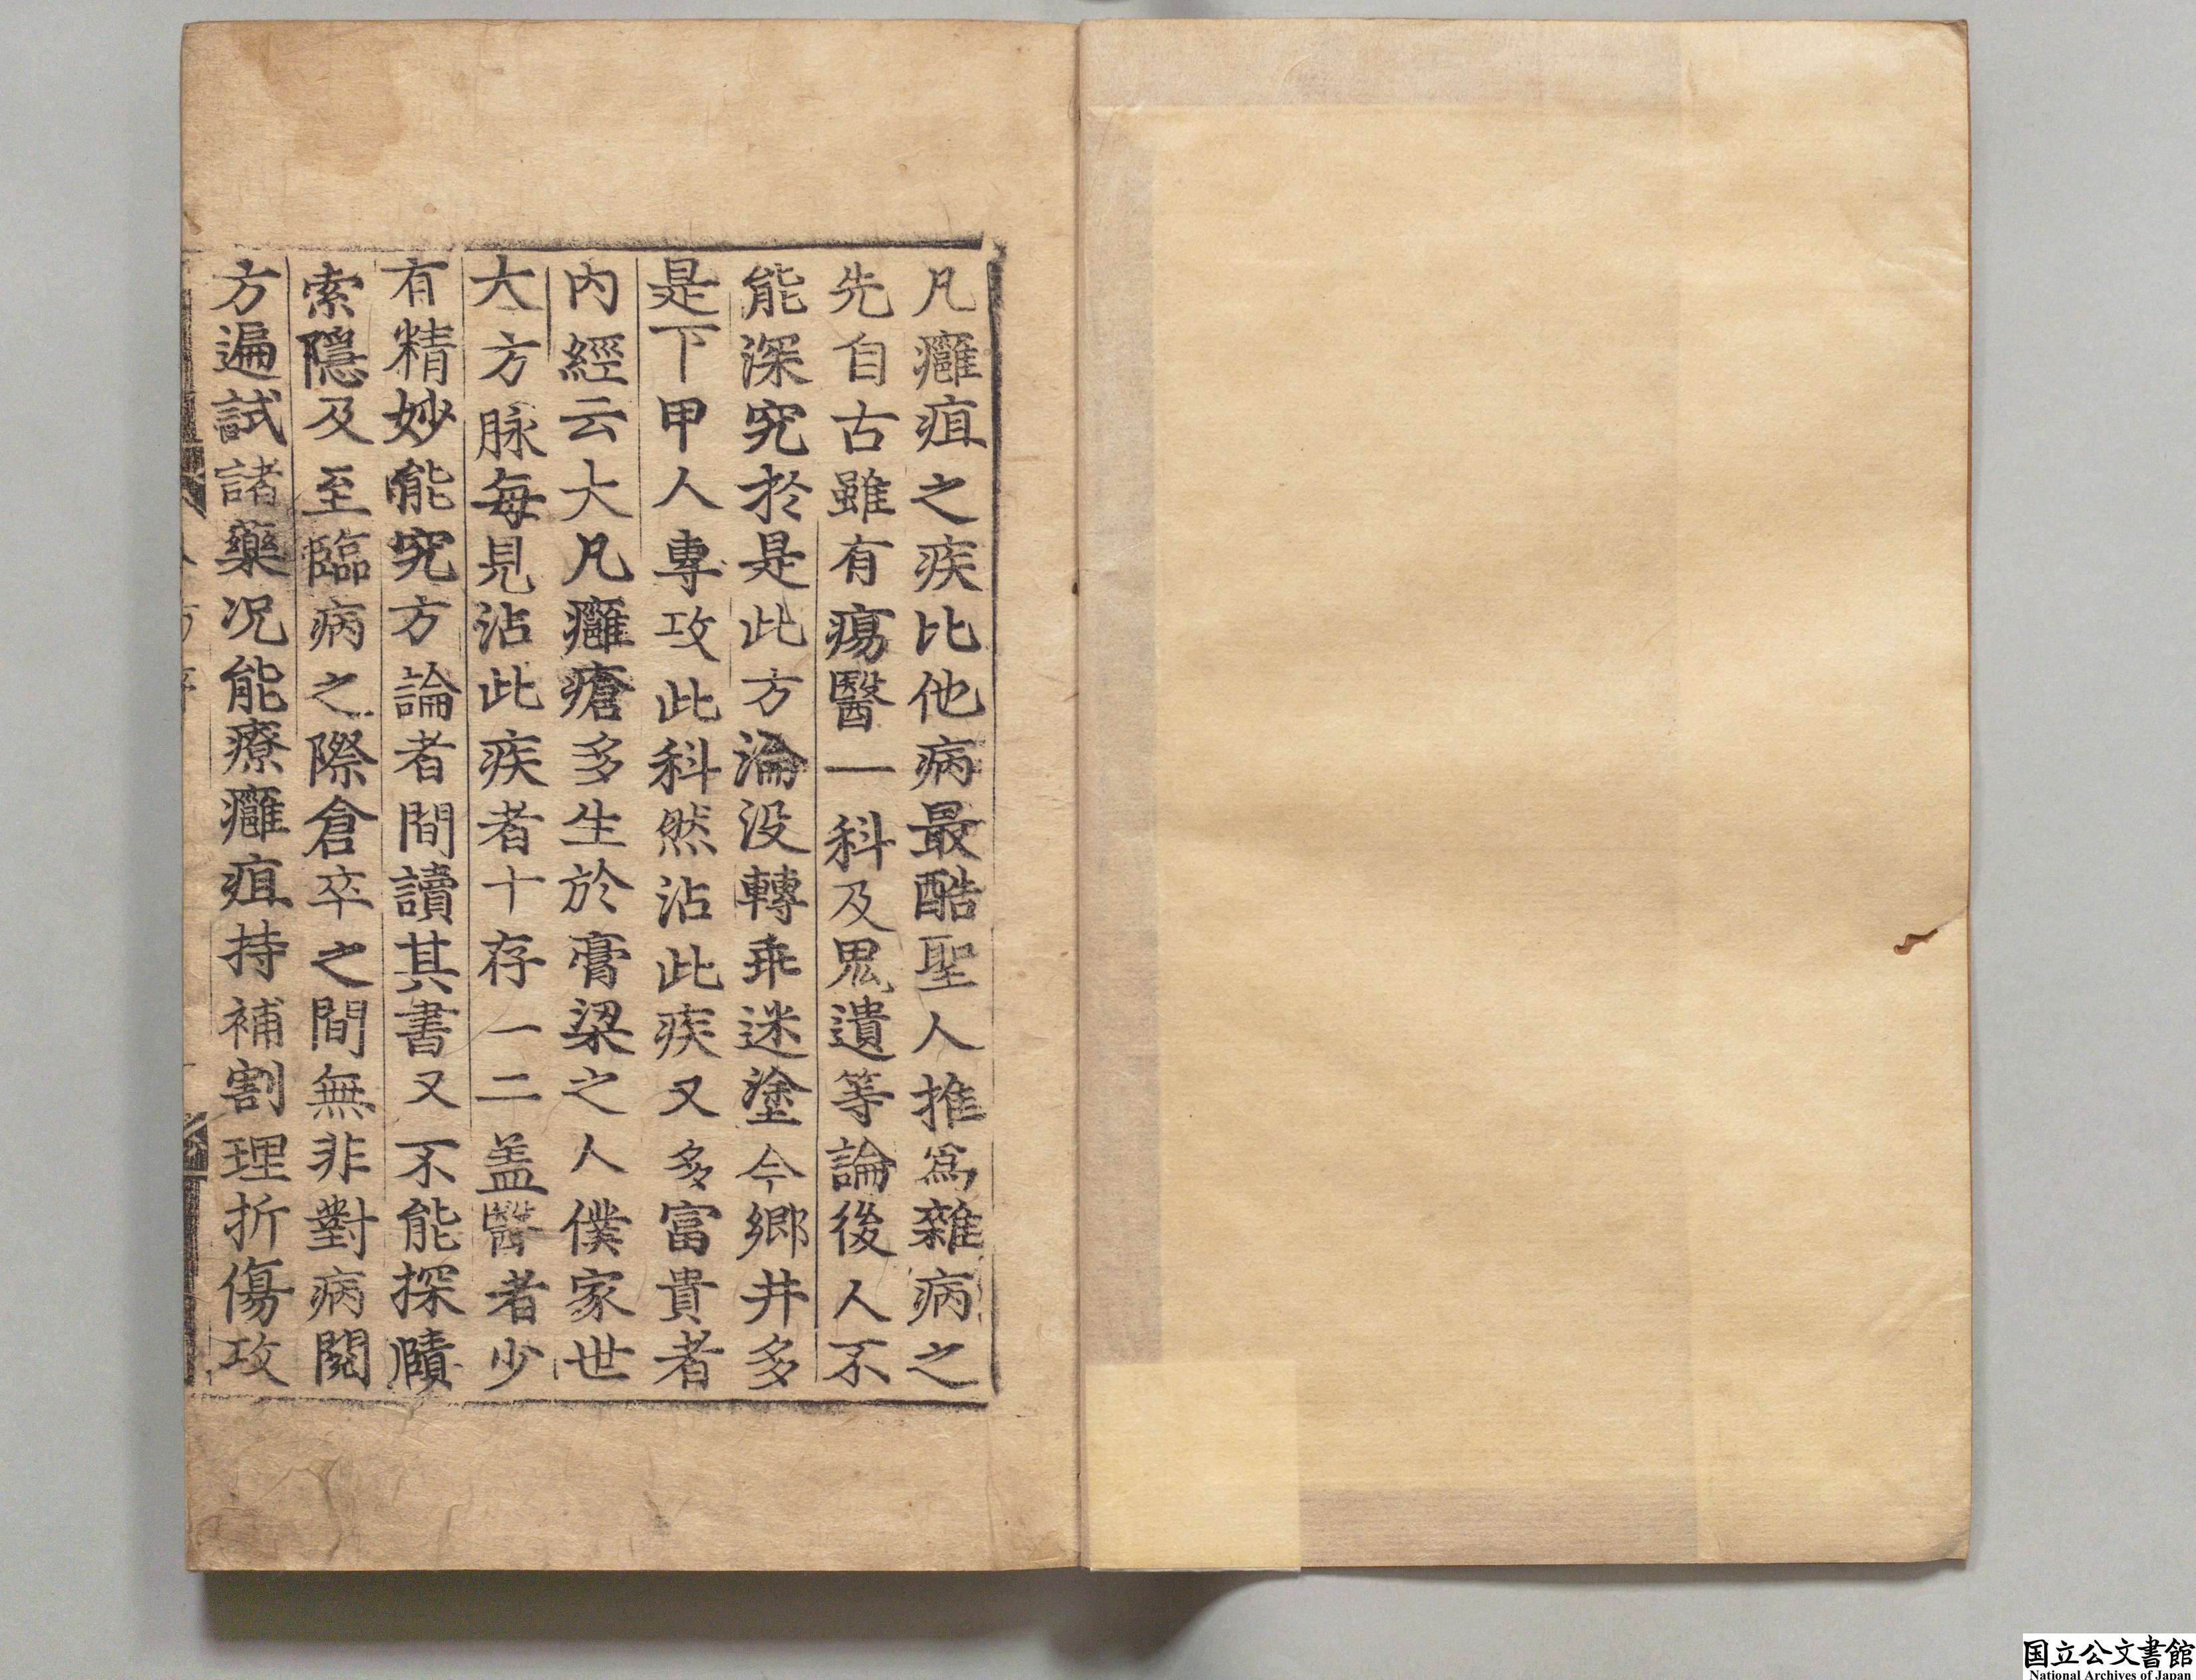 凡癰疽之疾比他病最酷聖人推爲雜病之
先自古雖有瘍醫一科及鬼遺等論後人不
能深究於是此方淪没轉乖迷塗今鄉井多
是下甲人專攻此科然沾此疾又多富貴者
內經云大凡癰瘡多生於膏粱之人僕家世
大方脉每見沾此疾者十存一二盖醫者少
有精妙能究方論者間讀其書又不能探賾
索隱及至臨病之際倉卒之間無非對病閱
方遍試諸藥况能療癰疽持補割理折傷攻
国立公文書館
National Archives of Japan